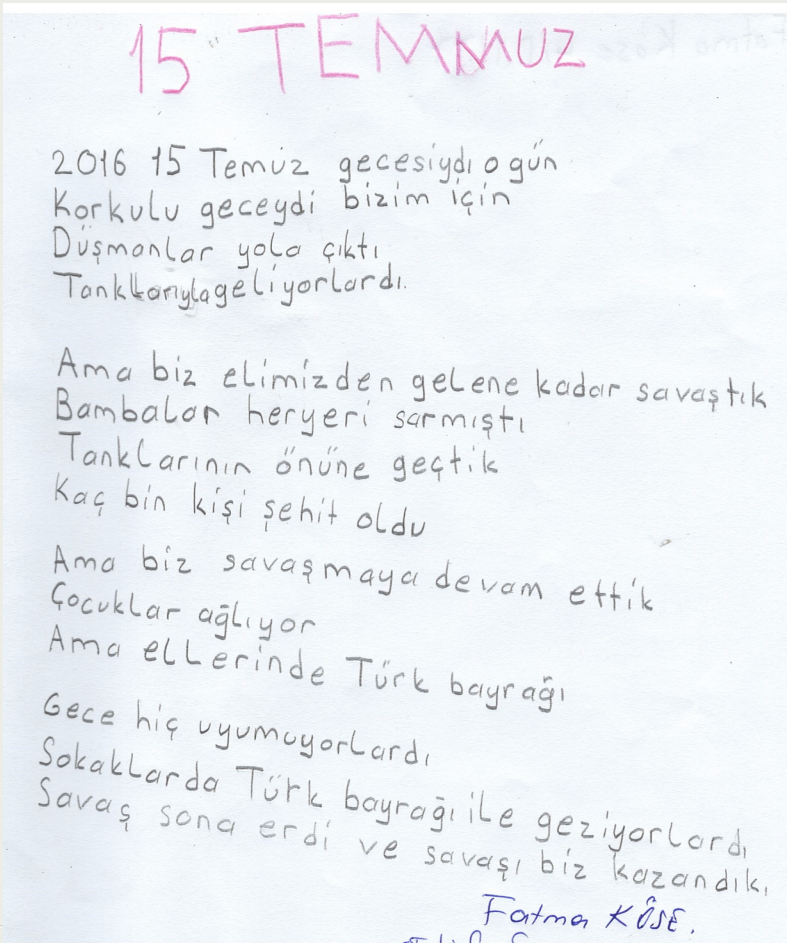 15 TEMMUZ
2016 15 Temuz gecesiydi o gün
Korkulu geceydi bizim için
Düşmanlar yola çıktı
Tanklarıyla geliyorlardı.
Ama biz elimizden gelene kadar savaştık
Bambalar heryeri sarmıştı
Tanklarının önüne geçtik
Kaç bin kişi şehit oldu
Ama biz savaşmaya devam ettik
Çocuklar ağlıyor
Ama ellerinde Türk bayrağı
Gece hiç uyumuyorlardı
Sokaklarda Türk bayrağı ile geziyorlardı
Savaş sona erdi ve savaşı biz kazandık.
Fatma KÖSE.